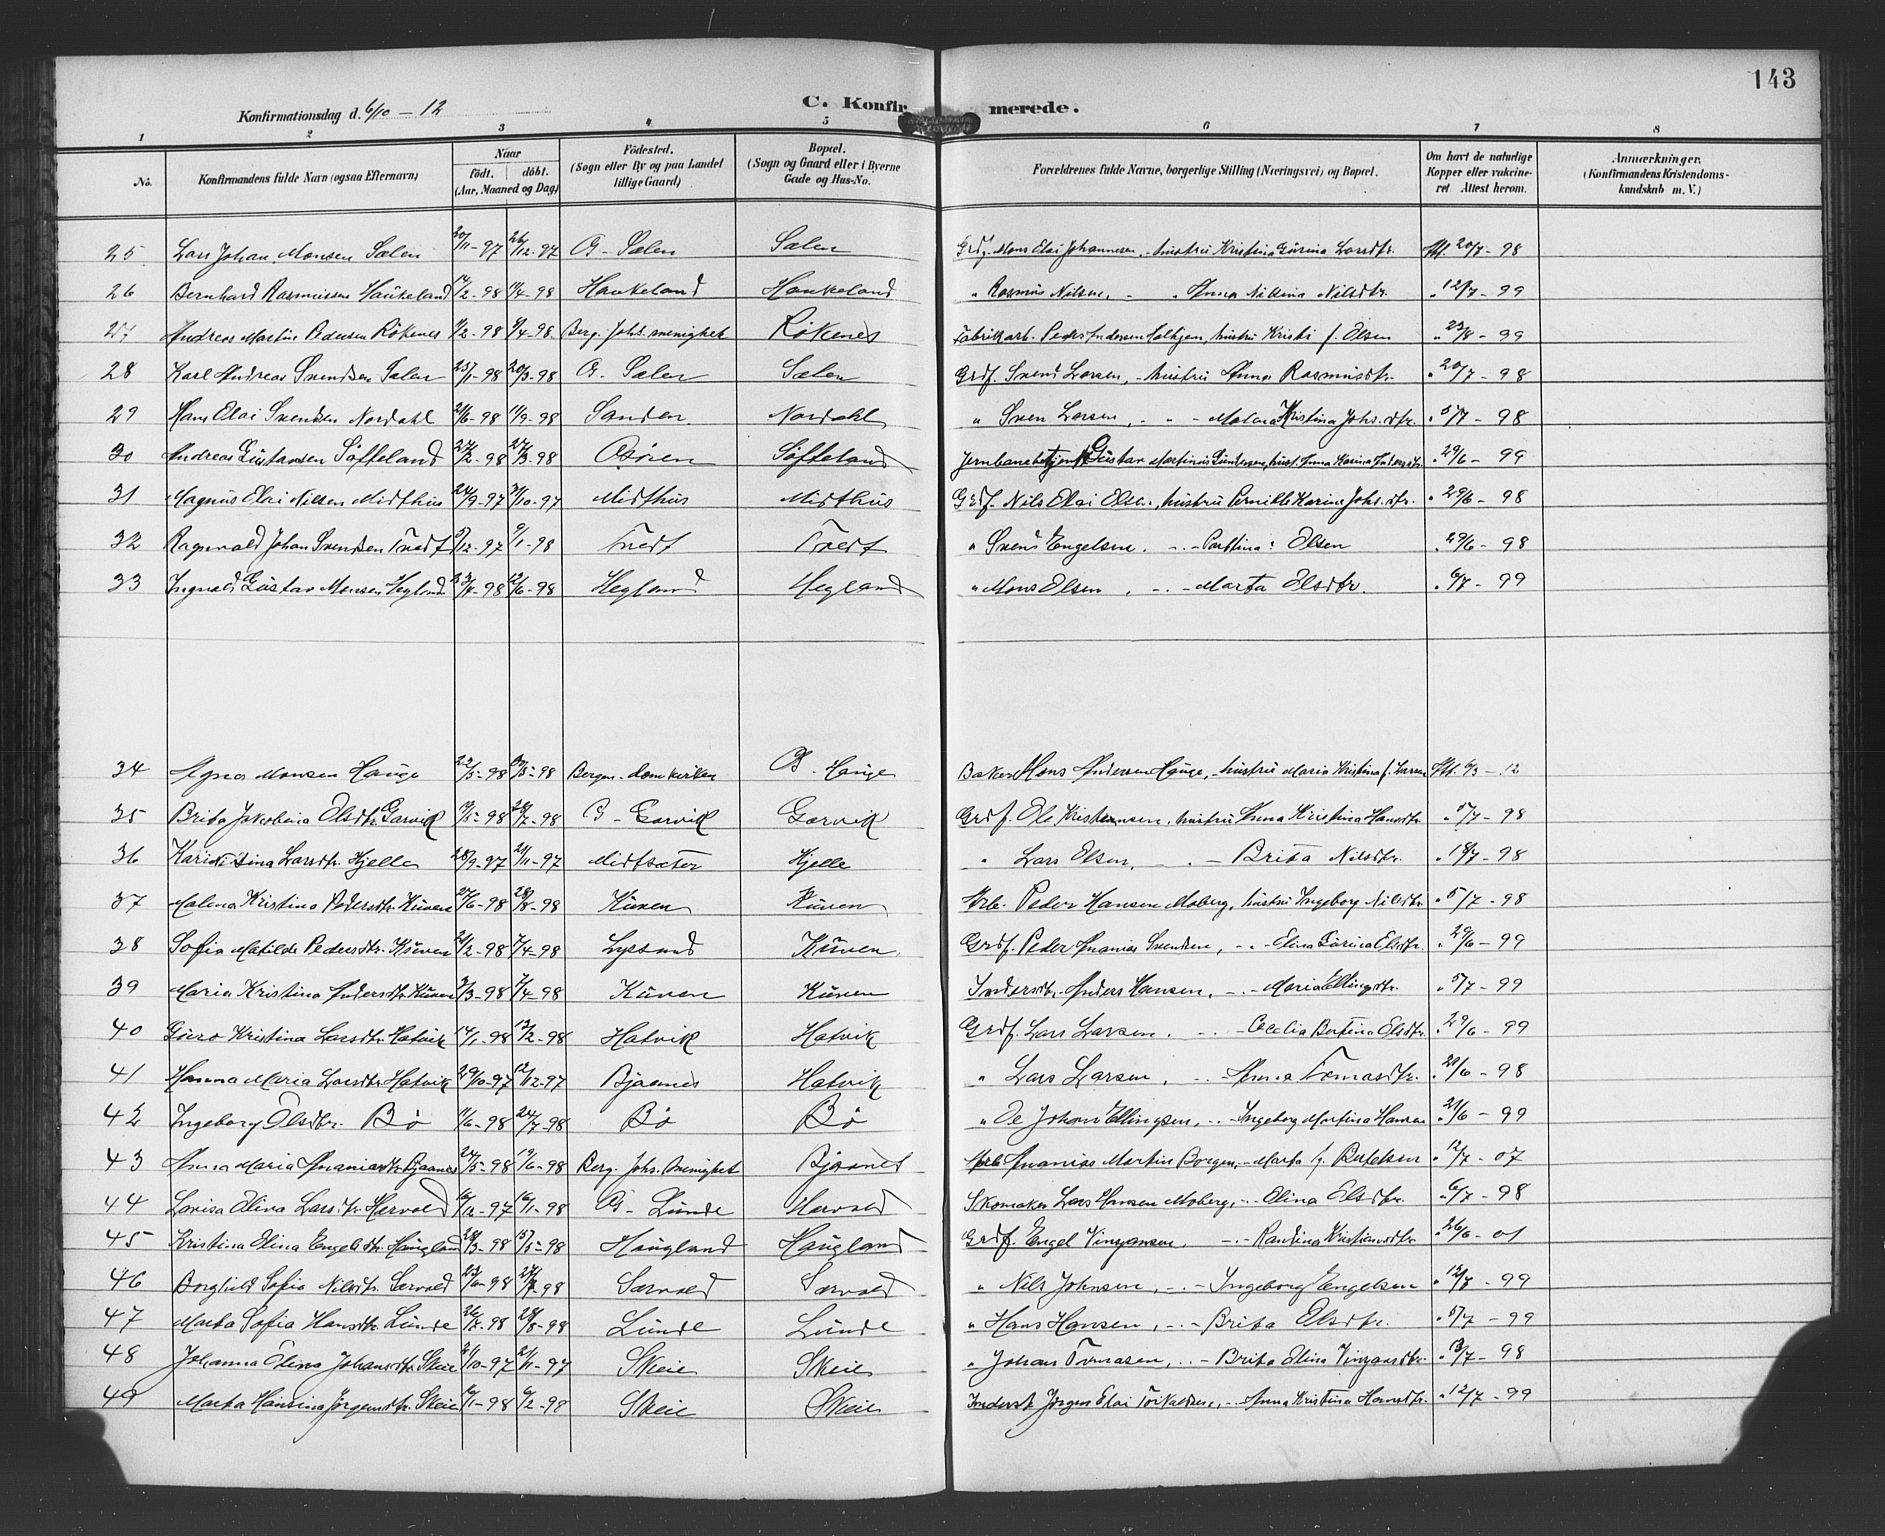 143
Konfirmationsdag d. 6/10 - 12
C. Konfirmerede.
1 2 3 4 5 6 7 8
No.
Konfirmandens fulde Navn (ogsaa Efternavn)
Naar
født. døbt.
(Aar, Maaned og Dag)
Fødested.
(Sogn eller By og paa Landet
tillige Gaard)
Bopæl.
(Sogn og Gaard eller i Byerne
Gade og Hus-No.
Forældrenes fulde Navne, borgerlige Stilling (Næringsvei) og Bopæl.
Om havt de naturlige
Kopper eller vakcine-
ret Attest herom.
Anmærkninger.
(Konfirmandens Kristendoms-
kundskab m. V.)
25 Lars Johan Monsen Sælen 20/11-97 26/12-97 Sælen Sælen Grdf. Mons Elai Johannesen, hustru Kristina Gurina Larsdtr. Att. 20/7-98
26 Bernhard Rasmussen Haukeland /2-98 /4-98 Haukeland Haukeland " Rasmus Nilsen, - " Anna Nilsina Nilsdtr. " 12/7-99
27 Andreas Martin Pedersen Rökenes /2-98 /4-98 Berg. Johs. menighet Rökenes Fabrikarb. Peder Andersen, hustru Kristi f. Olsen " 23/8-99
28 Karl Andreas Svendsen Sælen 25/1-98 20/3-98 Sælen Sælen Grdf. Svend Larsen, - hustru Anna Rasmusdtr. " 20/7-98
29 Hans Elai Svendsen Nordahl 2/6-98 /9-98 Sanden Nordahl " Sven Larsen, - " - Malena Kristina Johs.dtr. " 5/7-98
30 Andreas Gustavsen Söfteland 27/2-98 27/3-98 Osören Söfteland Jernbanebetjent Gustav Martinus Gundersen, hust. Anna Karina Andersdtr. " 29/6-99
31 Magnus Elai Nilsen Midthus 24/9-97 31/10-97 Midthus Midthus Grdf. Nils Elai Olsen, hustru Pernille Karine Johs.dtr. " 29/6-98
32 Ragnvald Johan Svendsen Tvedt 5/12-97 9/1-98 Tvedt Tvedt " Svend Engelsen. - " - Olsen " 29/6-98
33 Ingvald Gustav Monsen Hegland 98 12/6-98 Hegland Hegland " Mons Olsen, - " - Marta Olsdtr. " 6/7-99
34 Agnes Monsen Hauge 22/5-98 98 Bergen - domkirken Hauge Baker Mons Andersen Hauge, - hustru Maria Kristina f. Larsen Att. 9/3-12
35 Brita Jakobina Olsdtr. Garvik /5-98 98 Garvik Garvik Grdf. Ole Kristensen, hustru Anna Kristina Hansdtr. " 5/7-98
36 Larsdtr. Hjelle 28/9-97 21/11-97 Midtsæter Hjelle " Lars Olsen, - " - Brita Nilsdtr. " 18/7-98
37 Malena Kristina Pedersdtr. Kuven 27/6-98 28/8-98 Kuven Kuven Arb. Peder Hansen Moberg, hustru Ingeborg Nilsdtr. " 5/7-98
38 Sofia Matilde Pedersdtr. Kuven 2-98 /4-98 Lysend Kuven Grdf. Peder Ananias Svendsen, - " - Elina Gurina Elsdtr. " 29/6-99
39 Maria Kristina Andersdtr. Kuven 3/3-98 7/4-98 Kuven Kuven Anders Hansen, - " - Maria Ellingsdtr. " 5/7-99
40 Guro Kristina Larsdtr. Hatvik 14/1-98 13/2-98 Hatvik Hatvik Grdf. Lars Larsen. - " - Cecilia Bertina Elsdtr. " 29/6-99
41 Hanna Maria Larsdtr. Hatvik 29/10-97 12/12-97 Bjaanes Hatvik " Lars Larsen, - " - Anna Tomasdtr. " 21/6-98
42 Ingeborg Olsdtr. Bö 11/6-98 24/7-98 Bö Bö " Johan Ellingsen, - " - Ingeborg Martina Hansen " 21/6-99
43 Anna Maria Ananiasdtr. Bjaanes 24/5-98 19/6-98 Berg. Johs. Menighet Bjaanes Arb. Ananias Martin Borgen, - Marta f. Bertelsen " 12/7-07
44 Lovisa Elina Larsdtr. Hervold /12-97 16/1-98 Lunde Hervold Skomaker Lars Hansen Moberg, - " - Elina Elsdtr. " 6/7-98
45 Kristina Elina Engelsdtr. Haugland 28/3-98 15/5-98 Haugland Haugland Grdf. Engel Vinjansen, - " - Randina Kristiansdtr. " 26/6-01
46 Borghild Sofia Nilsdtr. Særvold 98 98 Særvold Særvold " Nils Johnsen, - " - Ingeborg Engelsen " 12/7-99
47 Marta Sofia Hansdtr. Lunde 98 28/8-98 Lunde Lunde " Hans Hansen, - " - Brita Elsdtr. " 5/7-99
48 Johanna Elina Johansdtr. Skeie /10-97 21/11-97 Skeie Skeie " Johan Tomasen, - " - Brita Elina Vinjansdtr. " 13/7-98
49 Marta Hansina Jörgensdtr. Skeie /1-98 6/2-98 Skeie Skeie Jörgen Elai Torkeldsen, - " - Anna Kristina Hansdtr. " 12/7-99